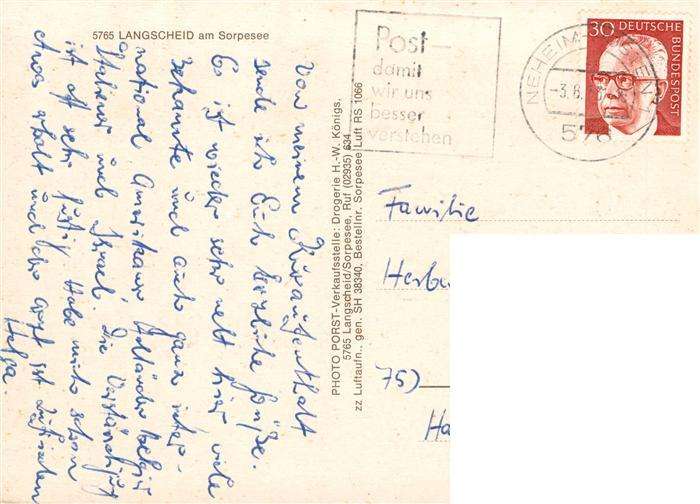 5765 LANGSCHEID am Sorpesee
Von meinem Kuraufenthalt
sende ich Euch herzliche Grüße.
Es ist wieder sehr nett hier viele
Bekannte und auch ganz inter-
national Amerikaner Holländer Belgier
Italiener und Israel. Die Verständigung
ist oft sehr lustig. Habe mich schon
etwas erholt und der Arzt ist zufrieden
Helga.
PHOTO PORST-Verkaufsstelle: Drogerie H.-W. Königs,
5765 Langscheid/Sorpesee, Ruf (02935) 634
zz Luftaufn.. gen. SH 38340, Bestellnr. Sorpesee Luft RS 1066
Post –
damit
wir uns
besser
verstehen
NEHEIM-
-3.8.
576
30 DEUTSCHE
BUNDESPOST
Familie
Herb
75)
Ha